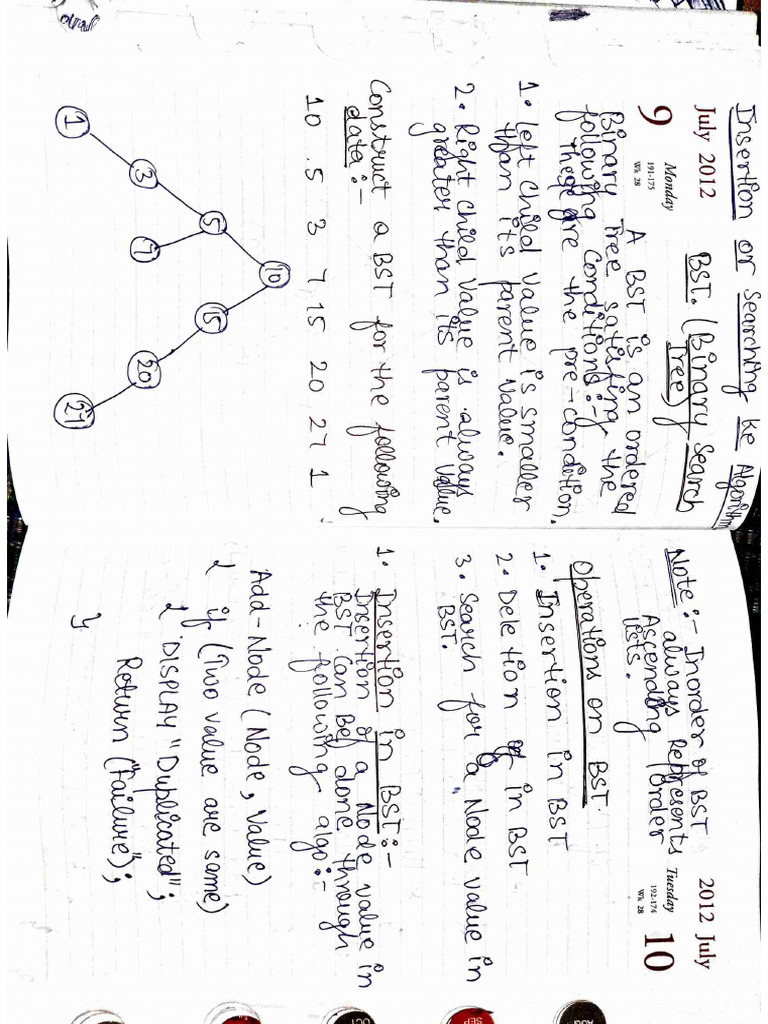 Insertion or Searching ke Algorithm
July 2012
9
Monday
191-175
Wk 28
BST. (Binary Search
Tree)
A BST is an ordered
Binary Tree satisfing the
following Conditions:-
these are the pre-condition.
1. left child Value is smaller
than its parent Value.
2. Right child Value is always
greater than its parent Value.
Construct a BST for the following
data:-
10 . 5 3 7, 15 20 27 1
10
5 15
3 7 20
1 27
2012 July
Tuesday
192-174
Wk 28
10
Note :- Inorder of BST
always Represents
Ascending order
lists.
Operations on BST.
1. Insertion in BST
2. Deletion of in BST
3. Search for a Node Value in
BST.
1. Insertion in BST:-
Insertion of a Node value in
BST Can Be done through
the following algo:-
Add-Node (Node, Value)
{ if (Two value are same)
{ DISPLAY "Duplicated";
Return ("Failure");
}
OCT
SEP
AUG